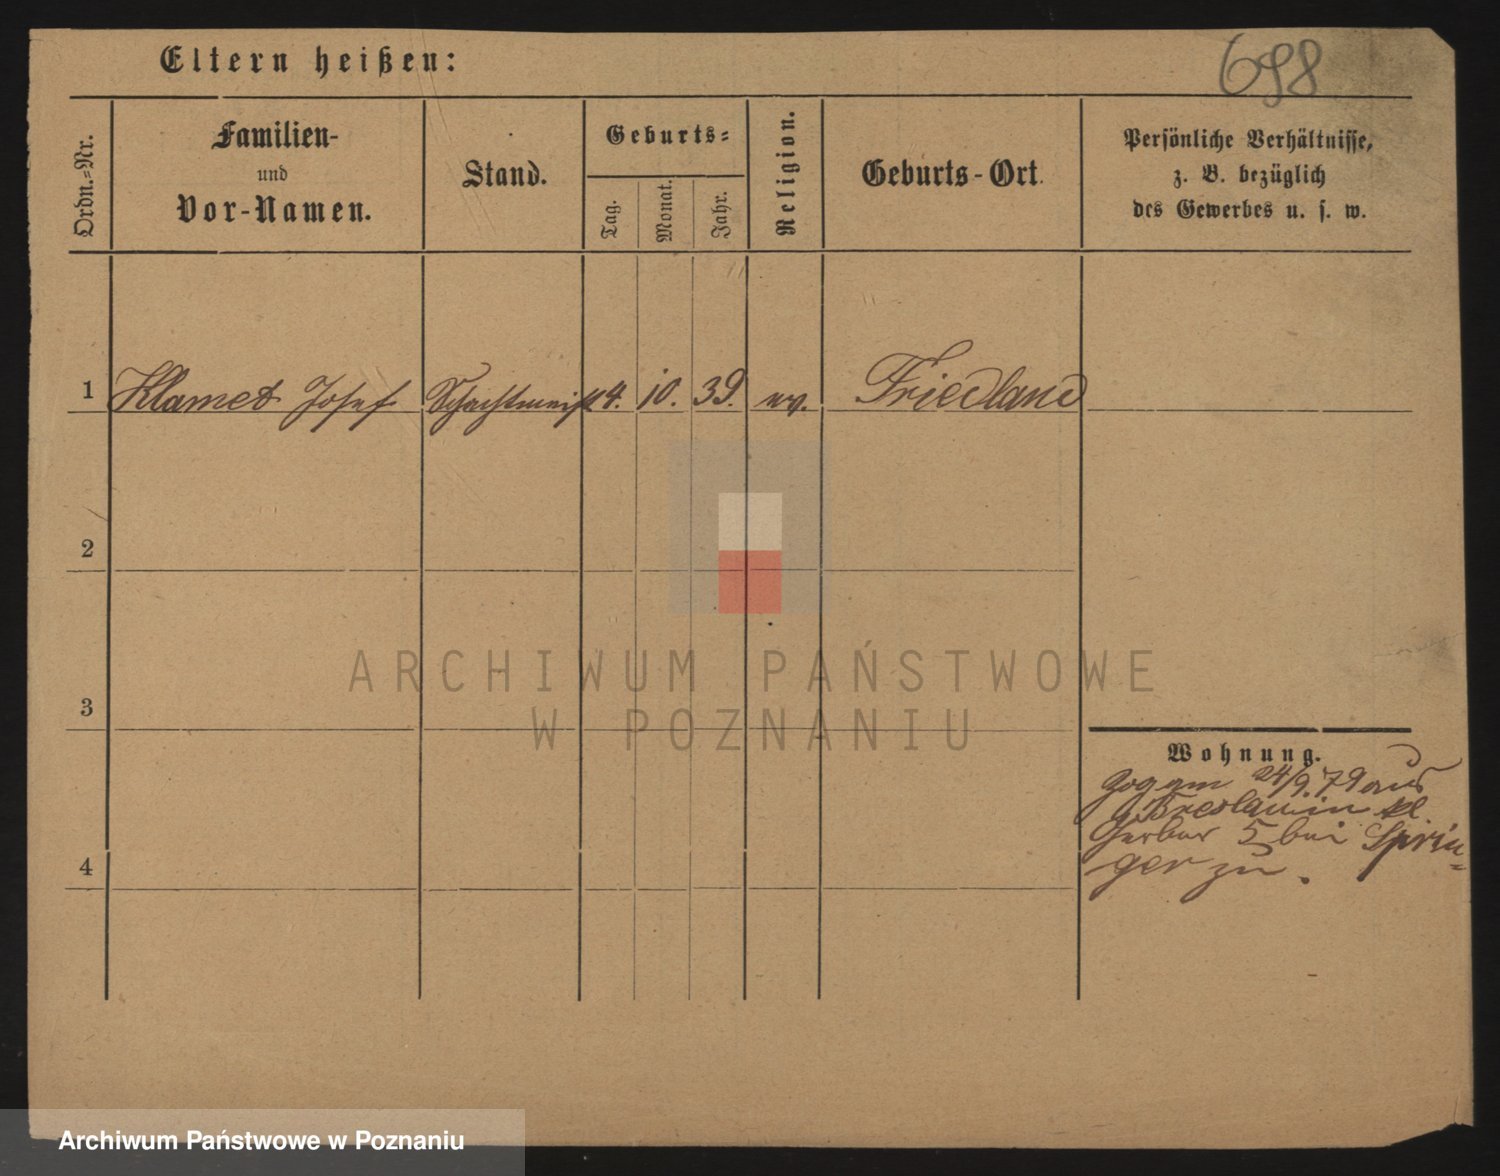 Eltern heißen:
698
Ordn.-Nr.
Familien-
und
Vor-Namen.
Stand.
Geburts-
Tag.
Monat.
Jahr.
Religion.
Geburts-Ort.
Persönliche Verhältnisse,
z. B. bezüglich
des Gewerbes u. s. w.
1 Klamet Josef Schachtmeist 4. 10. 39. ev. Friedland
2
3
4
Wohnung.
Zog am 24/9. 79 aus
Breslau in kl.
Gerber 5 bei Sprin-
ger zu.
ARCHIWUM PAŃSTWOWE
W POZNANIU
Archiwum Państwowe w Poznaniu